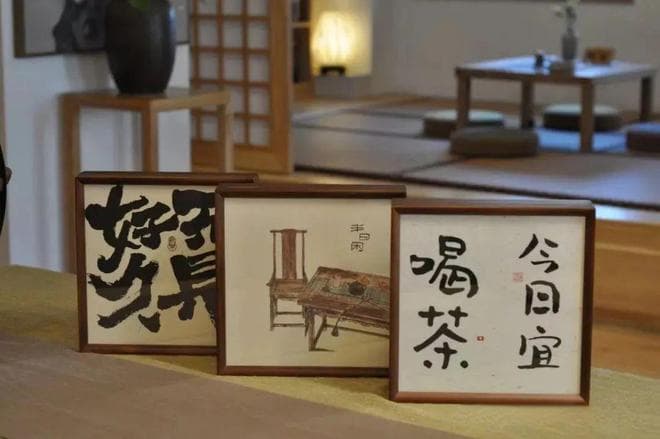 好久
不見
半日闲
今日宜
喝茶